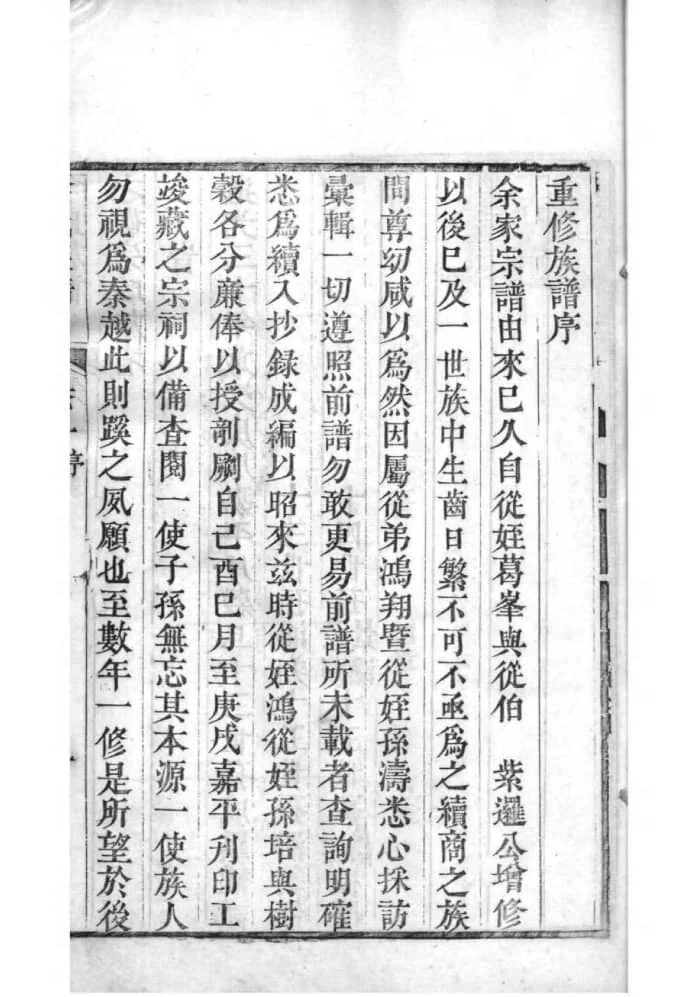 重修族譜序
余家宗譜由來已久自從姪葛峯與從伯　紫邏公增修
以後已及一世族中生齒日繁不可不亟爲之續商之族
間尊幼咸以爲然因屬從弟鴻翔暨從姪孫濤悉心採訪
彙輯一切遵照前譜勿敢更易前譜所未載者查詢明確
悉爲續入抄録成編以昭來兹時從姪鴻從姪孫培與樹
穀各分廉俸以授剞劂自己酉巳月至庚戌嘉平刋印工
竣藏之宗祠以備查閱一使子孫無忘其本源一使族人
勿視爲秦越此則蹊之夙願也至數年一修是所望於後
序